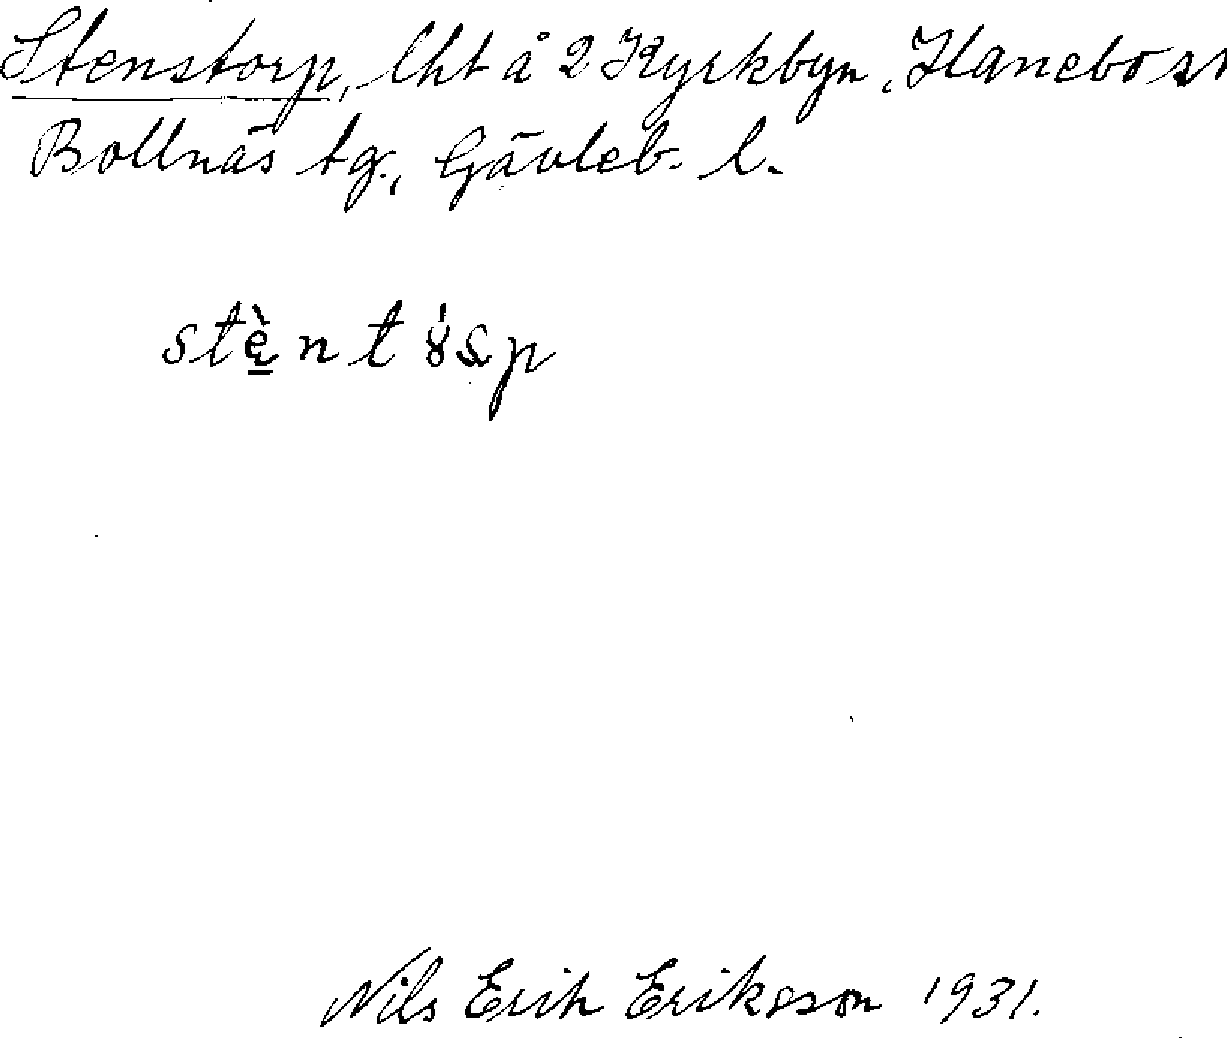 Stenstorp, lht å 2 Kyrkbyn, Hanebo sn
Bollnäs tg., Gävleb. l.
Nils Erik Eriksson 1931.